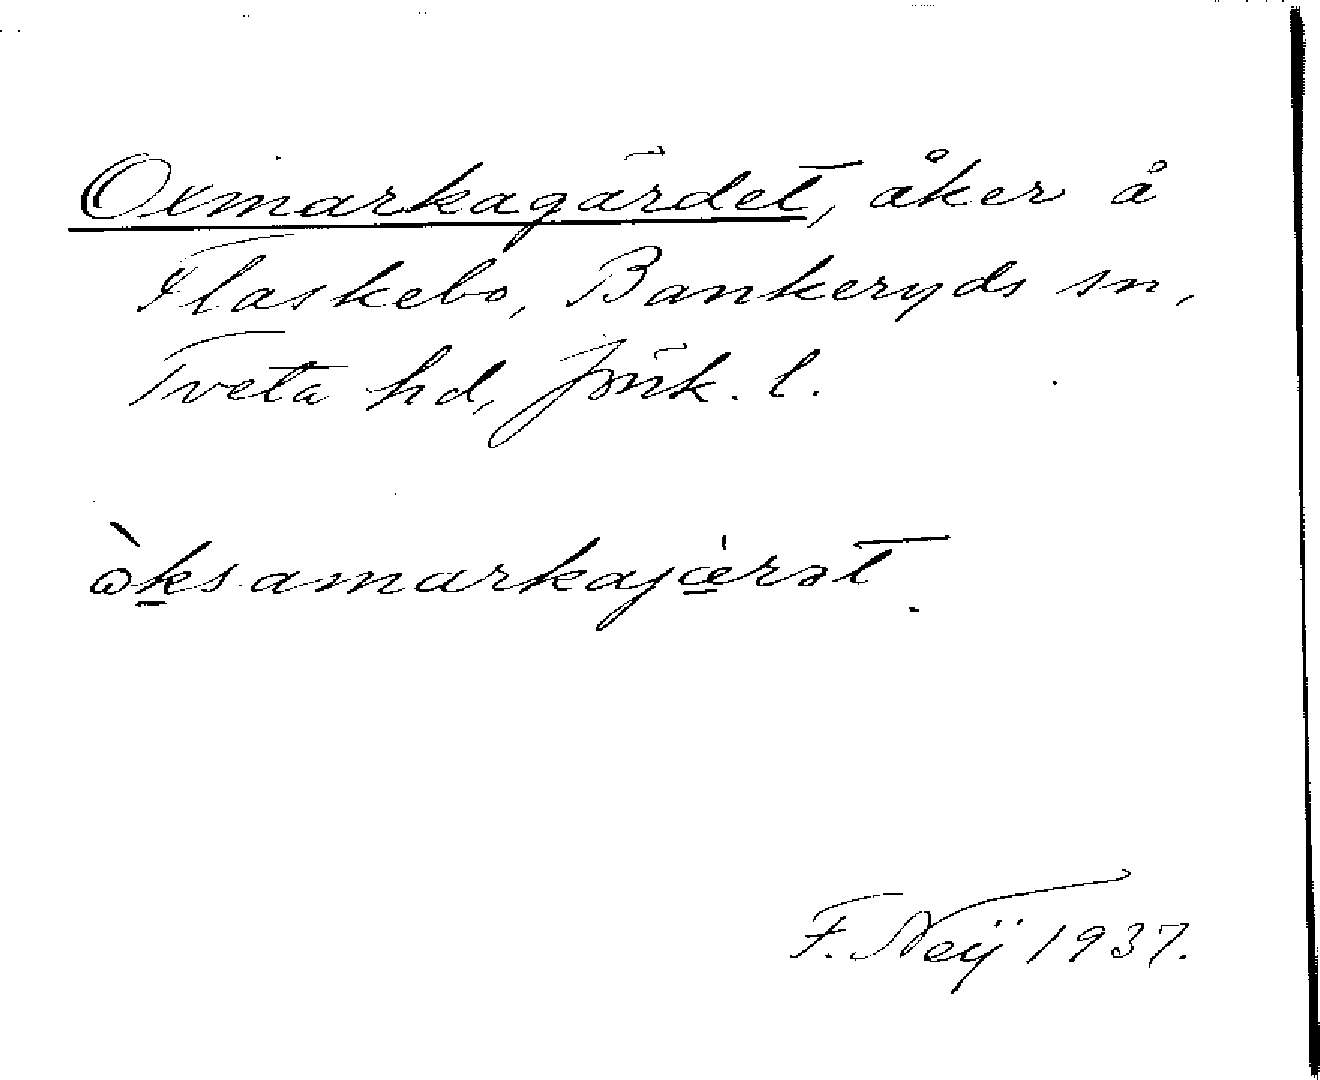 Oxmarkagärdet, åker å
Flaskebo, Bankeryds sn,
Tveta hd, Jönk. l.
òksamarkajæ̀rət.
F. Neÿ 1937.